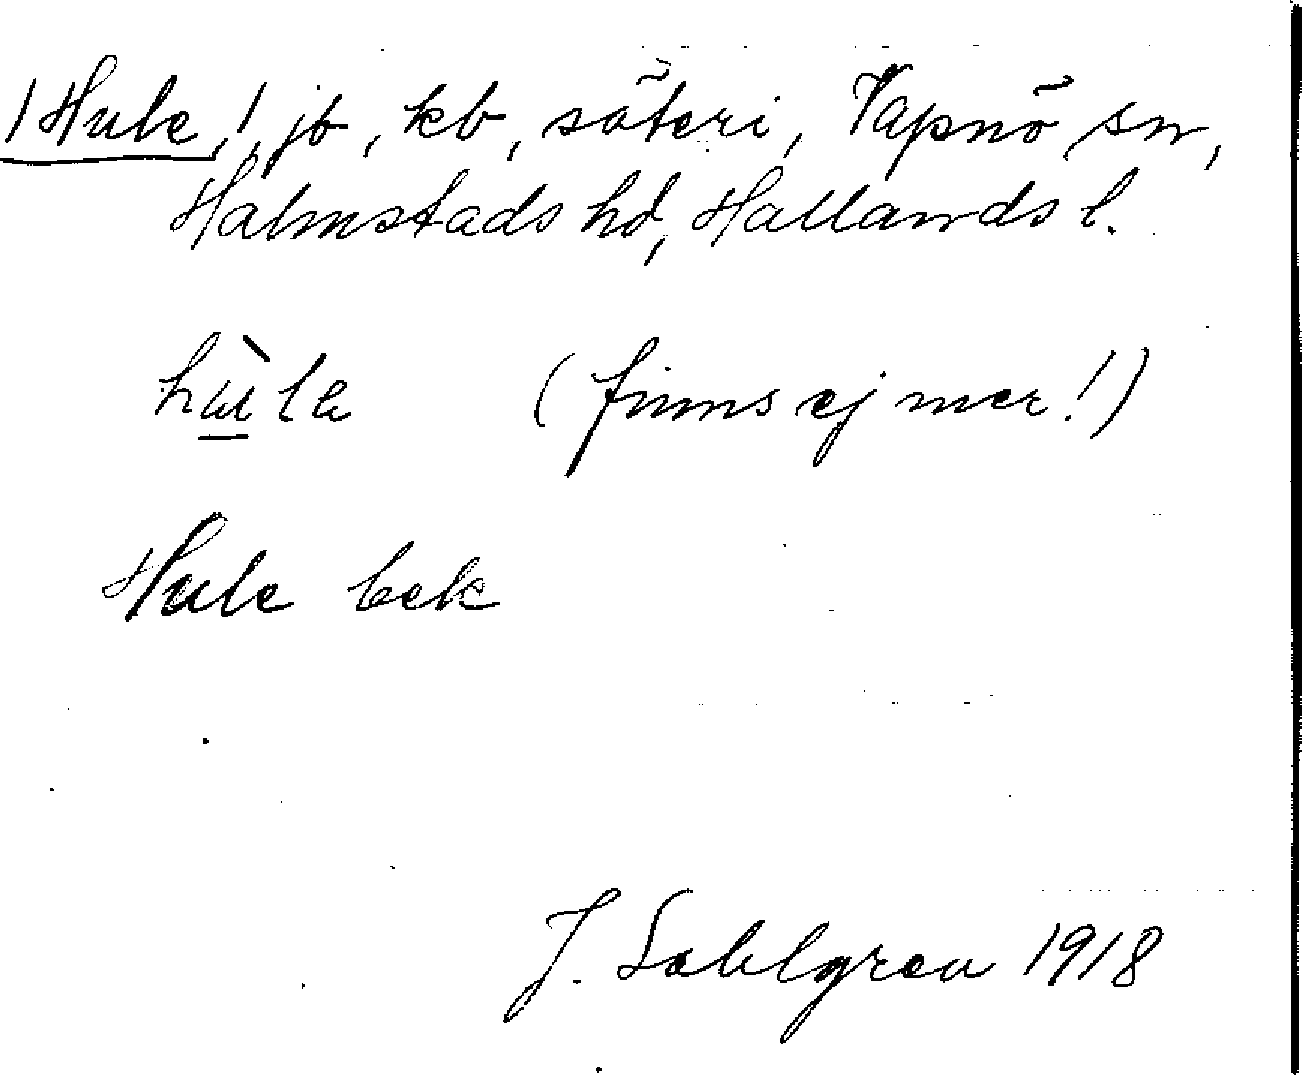 /Hule,/ jb, kb, säteri, Vapnö sn,
Halmstads hd, Hallands l.
hùla (finns ej mer!)
Hule bek
J. Sahlgren 1918